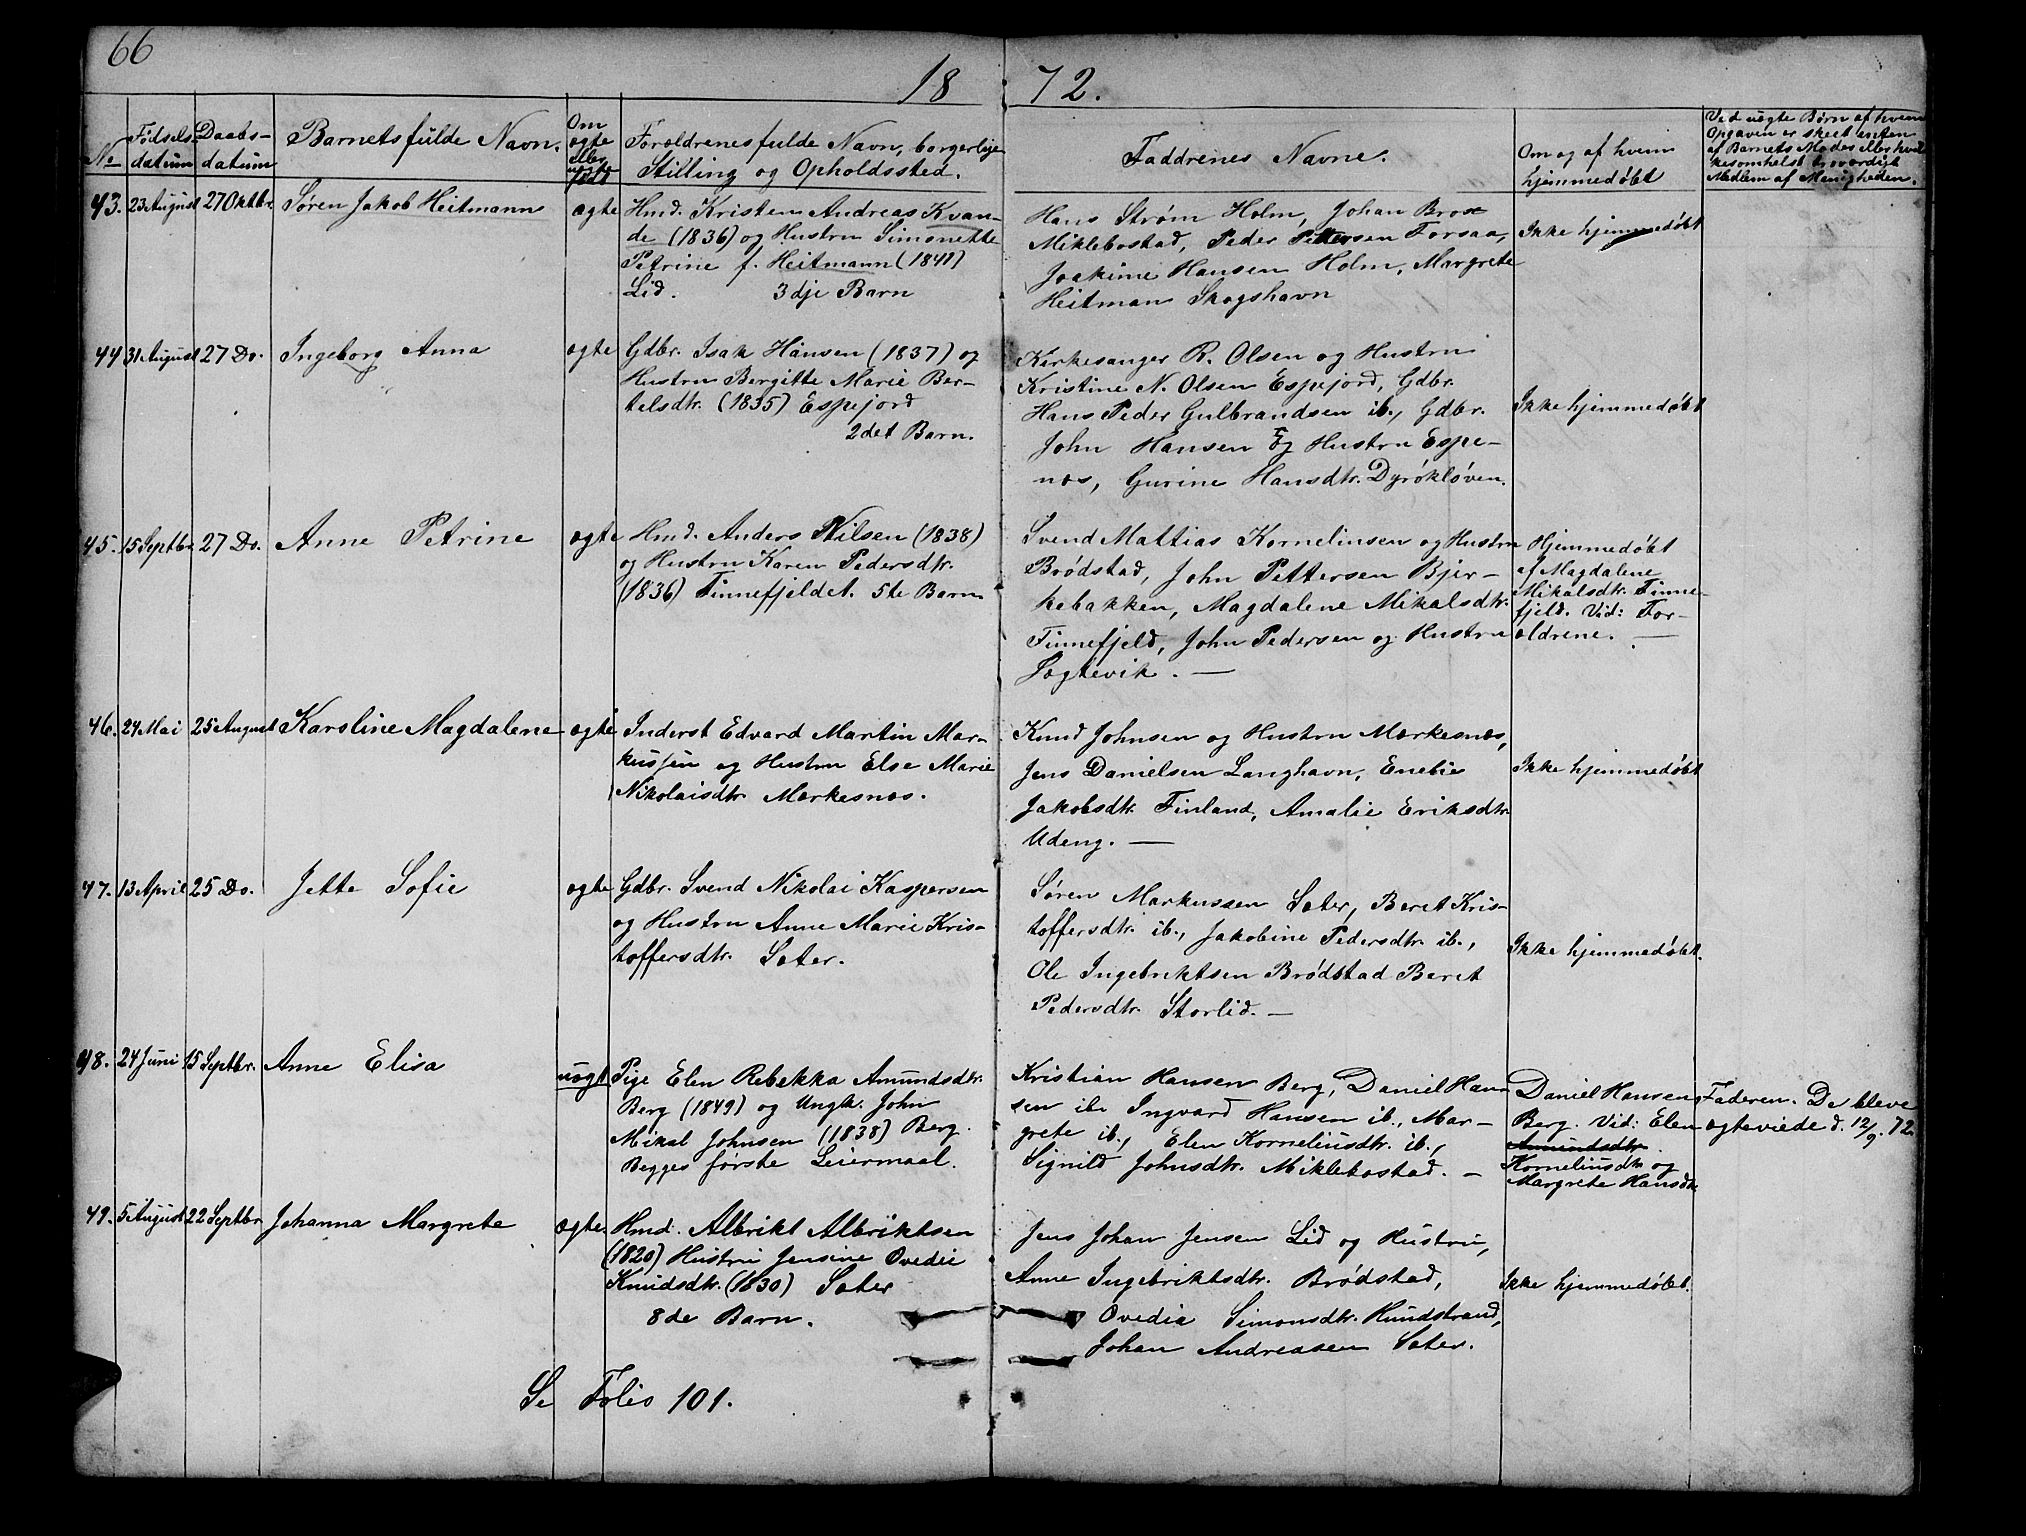 66
18 72.
No
Fødsels-
datum
Daabs-
datum
Barnets fulde Navn.
Om
ægte
eller
uægte
født
Forældrenes fulde Navn, borgerlige
Stilling og Opholdssted.
Faddrenes Navne.
Om og af hvem
hjemmedøbt
Ved uægte Børn af hvem
Opgaven er skeet enten
af Barnets Moder eller hvil
kesomhelst troværdigt
Medlem af Menigheden.
43. 23 August 27 Oktbr. Søren Jakob Heitmann ægte
Hmd. Kristen Andreas Kvan-
de (1836) og Hustru Simonette
Petrine f. Heitmann (1841)
Lid. 3dje Barn
Hans Strøm Holm, Johan Brox
Miklebostad, Peder Pettersen Forsaa,
Joakime Hansen Holm, Margrete
Heitman Skogshavn
Ikke hjemmedøbt
44 31 August 27 Do. Ingeborg Anna ægte
Gdbr. Isak Hansen (1837) og
Hustru Bergitte Marie Ber-
telsdtr. (1835) Espejord
2det Barn.
Kirkesanger R. Olsen og Hustru
Kristine N. Olsen Espejord, Gdbr.
Hans Peder Gulbrandsen ib., Gdbr.
John Hansen og Hustru Espe-
næs, Gurine Hansdtr. Dyrøkløven.
Ikke hjemmedøbt
45. 15 Septbr. 27 Do. Anne Petrine ægte
Hmd. Anders Nilsen (1838)
og Hustru Karen Pedersdtr.
(1836) Finnefjeldet. 5te Barn
Svend Mattias Kornelinsen og Hustru
Brødstad, John Pettersen Bjer-
kebakken, Magdalene Mikalsdtr.
Finnefjeld, John Pedersen og Hustru
Sogtevik. —
Hjemmedøbt
af Magdalene
Mikalsdtr. Finne-
fjeld. Vid: For-
ældrene. —
46. 24 Mai 25 August Karoline Magdalene ægte
Inderst Edvard Martin Mar-
kussen og Hustru Else Marie
Nikolaisdtr. Mærkesnæs.
Knud Johnsen og Hustru Mærkesnæs,
Jens Danielsen Langhavn, Enelie
Jakobsdtr. Finland, Amalie Eriksdtr.
Udeng. —
Ikke hjemmedøbt
47. 13 April 25 Do. Jette Sofie ægte
Gdbr. Svend Nikolai Kaspersen
og Hustru Anne Marie Kris-
toffersdtr. Sæter.
Søren Markussen Sæter, Beret Kris-
toffersdtr. ib., Jakobine Pedersdtr. ib.,
Ole Ingebriktsen Brødstad Beret
Pedersdtr. Storlid. —
Ikke hjemmedøbt.
48. 24 Juni 15 Septbr. Anne Elisa uægt
Pige Elen Rebekka Amundsdtr.
Berg (1849) og Ungk. John
Mikal Johnsen (1838) Berg.
Begges første Leiermaal.
Kristian Hansen Berg, Daniel Han-
sen ib. Ingvard Hansen ib., Mar-
grete ib., Elen Korneliusdtr. ib.,
Signild Johnsdtr. Miklebostad. —
Daniel Hansen
Berg. Vid: Elen
Amundsdtr.
Korneliusdtr. og
Margrete Hansdtr
Faderen. De bleve
ægteviede d. 12/9. 72.
49. 5 August 22 Septbr. Johanna Margrete ægte
Hmd. Albrikt Albriktsen
(1820) Hustru Jensine Ovedie
Knudsdtr. (1830) Sæter
8de Barn.
Jens Johan Jensen Lid og Hustru,
Anne Ingebriktsdtr. Brødstad,
Ovedia Simonsdtr. Hundstrand,
Johan Andreasen Sæter.
Ikke hjemmedøbt.
Se Folio 101.